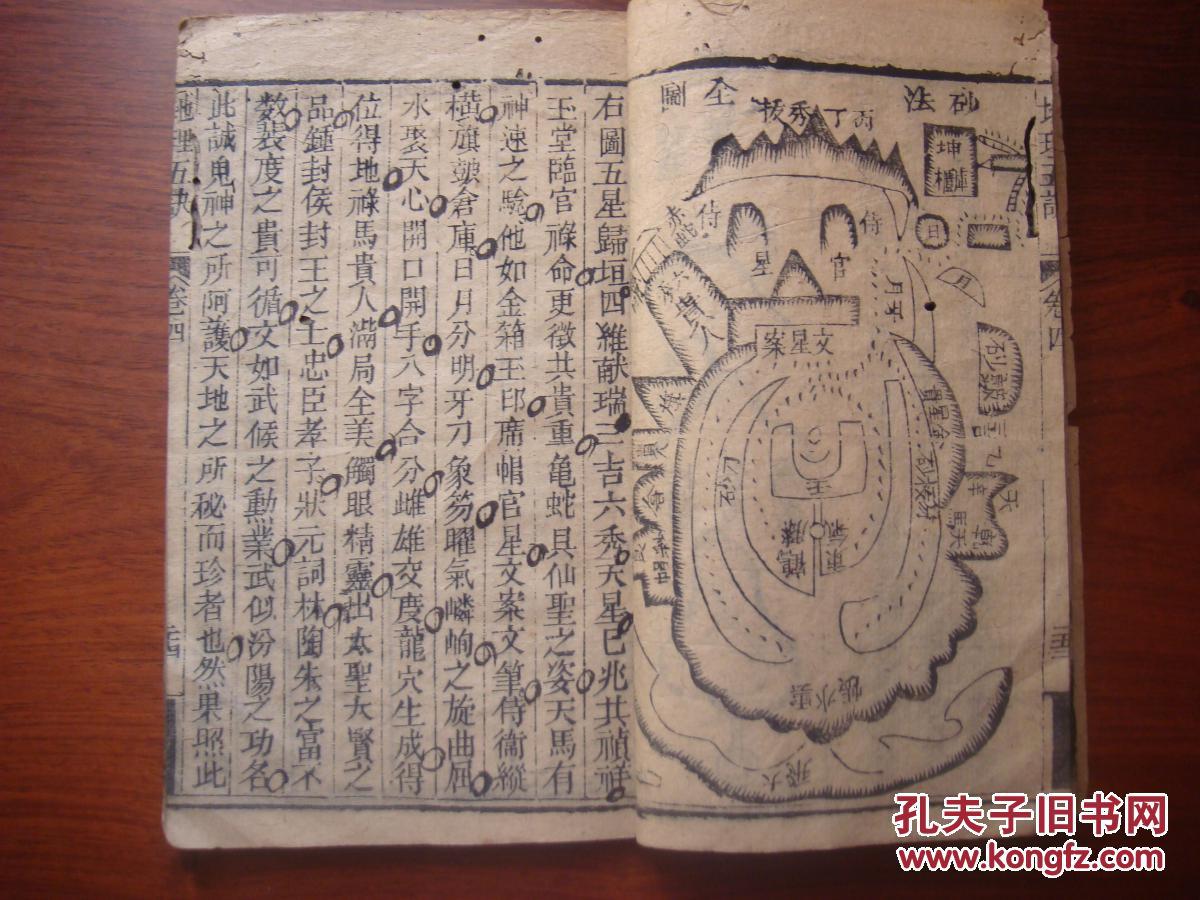 砂法全圖
丙丁秀拔
坤
櫃
日
月
侍
官
侍
星
月牙
貴人
文星案
刀砂
鶴膝
雲水帳
右圖五星歸垣四維献瑞三吉六秀天星已兆其禎祥
玉堂臨官祿命更徵其貴重亀蛇具仙聖之姿天馬有
神速之驗他如金箱玉印席帽官星文案文筆侍衞縱
橫旗皷倉庫日月分明牙刀象笏曜氣嶙峋之旋曲屈
水聚天心開口開手八字合分雌雄交度龍穴生成得
位得地祿馬貴人滿局全美觸眼精靈出太聖大賢之
品鍾封侯封王之士忠臣孝子狀元詞林陶朱之富不
数裴度之貴可循文如武候之勳業武似汾陽之功名
此誠鬼神之所阿護天地之所秘而珍者也然果照此
地理五訣
卷四
卷四
孔夫子旧书网
www.kongfz.com